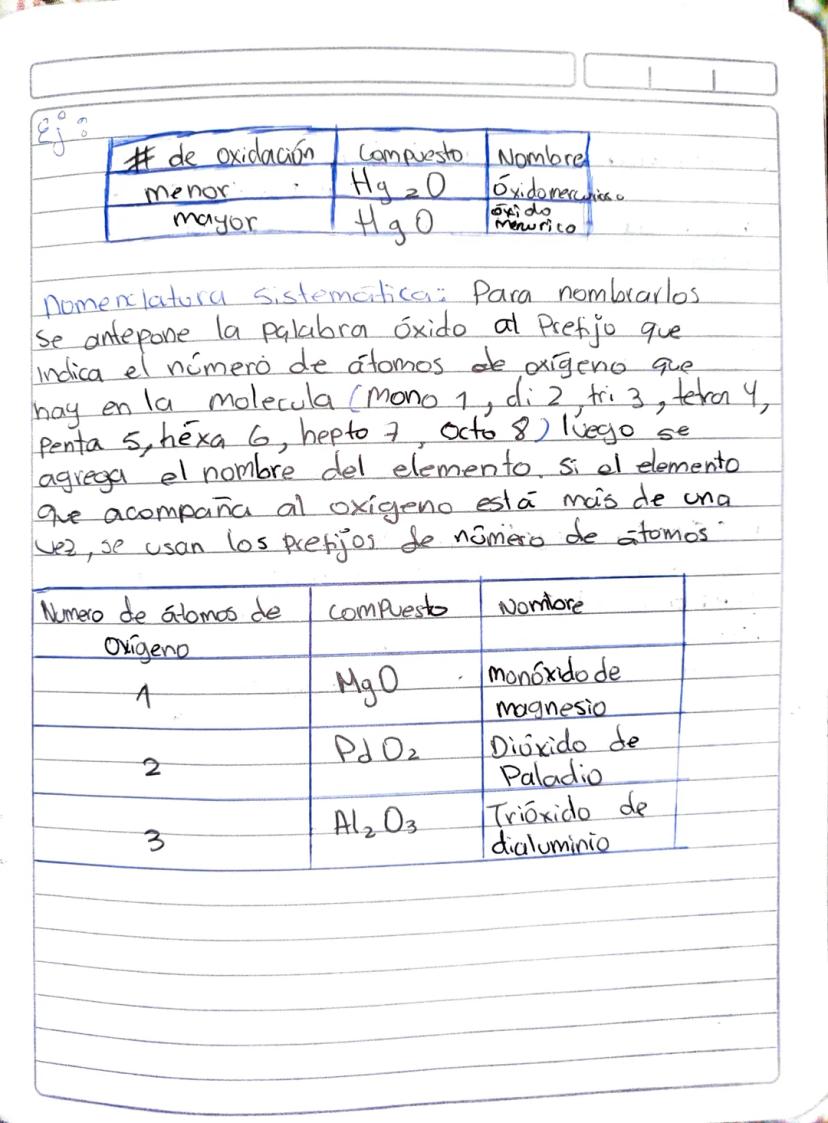 Ej:
# de oxidación Compuesto Nombre
menor Hg₂O Óxido mercurioso
mayor HgO óxido
mercurico
Nomenclatura sistemática: Para nombrarlos
se antepone la palabra óxido al Prefijo que
indica el número de átomos de oxígeno que
hay en la molecula (mono 1, di 2, tri 3, tetra 4,
penta 5, héxa 6, hepto 7, octo 8) luego se
agrega el nombre del elemento. Si el elemento
que acompaña al oxígeno está más de una
vez, se usan los prefijos de número de átomos
Numero de átomos de Compuesto Nombre
Oxígeno
1 MgO monóxido de
magnesio
2 PdO₂ Dióxido de
Paladio
3 Al₂O₃ Trióxido de
dialuminio